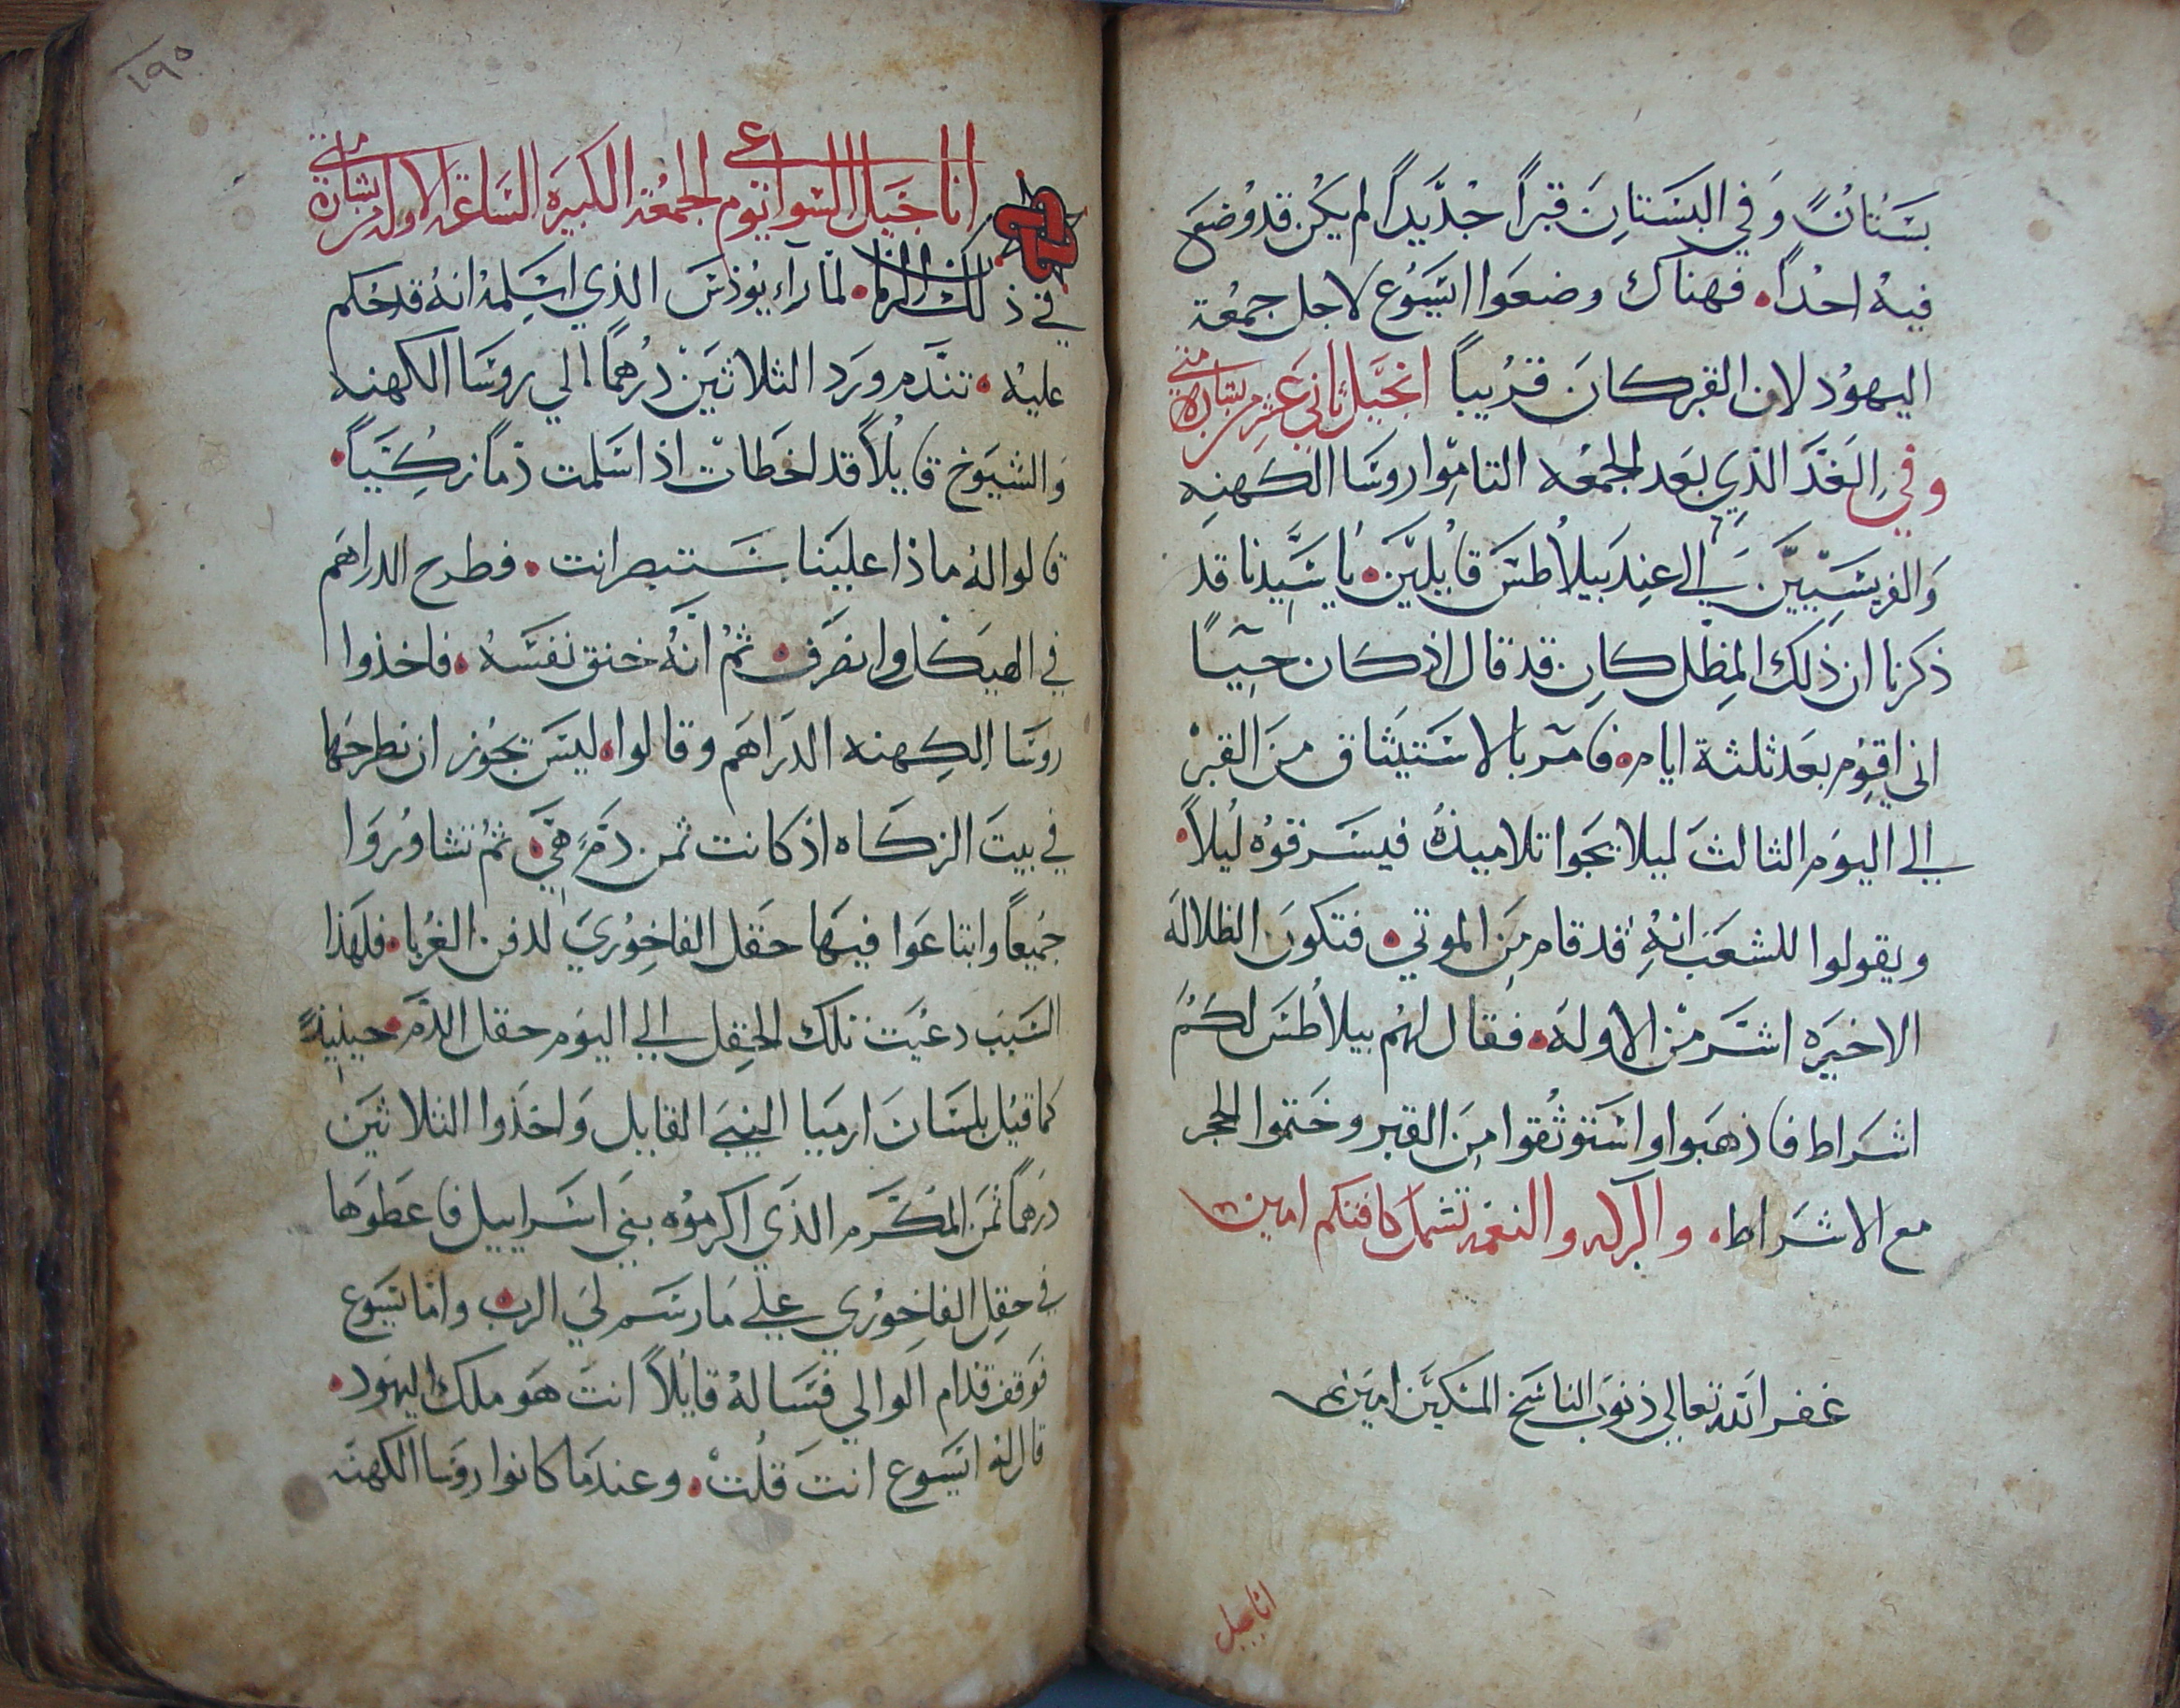 بستانً وفي البستان قبراً جديداً لم يكن قد وضع
فيه احداً. فهناك وضعوا ايسوع لاجل جمعة
اليهود لان القبر كان قريباً انجيل ثاني عشر بشارة متي
وفي الغد الذي بعد الجمعه التاموا روسا الكهنه
والفريسيين الي عند بيلاطس قايلين. يا سيدنا قد
ذكرنا ان ذلك المظل كان قد قال اذ كان حيياً
اني اقوم بعد ثلثة ايام. فامر بالاستيثاق من القبر
الي اليوم الثالث ليلا يجوا تلاميذه فيسرقوه ليلاً.
ويقولوا للشعب انه قد قام من الموتي. فتكون الظلاله
الاخيره اشر من الاوله. فقال لهم بيلاطس لكم
اشراط فاذهبوا واستوثقوا من القبر وختموا الحجر
مع الاشراط. والبركه والنعمه تشمل كافتكم امين
غفر الله تعالي ذنوب الناسخ المسكين امين
اناجيل
١٩٥
اناجيل السواعي يوم الجمعة الكبيره الساعة الاوله من بشارة متي
في ذلك الزمان. لما راء يوذس الذي اسلمه انه قد حكم
عليه. تندم ورد الثلاثين درهماً الي روسا الكهنه
والشيوخ قايلاً قد اخطات اذ اسلمت دماً زكيياً.
قالوا له ماذا علينا ستبصر انت. فطرح الدراهم
في الهيكل وانصرف. ثم انه خنق نفسه. فاخذوا
روسا الكهنه الدراهم وقالوا. ليس يجوز ان نطرحها
في بيت الزكاه اذ كانت ثمن دم هي. ثم تشاوروا
جميعاً وابتاعوا فيها حقل الفاخوري لدفن الغربا. فلهذا
السبب دعيت تلك الحقل الي اليوم حقل الدم. حينيذٍ
كما قيل بلسان ارميا النبي القايل واخذوا الثلاثين
درهماً ثمن المكرم الذي اكرموه بني اسراييل فاعطوها
في حقل الفاخوري علي ما رسم لي الرب. واما ايسوع
فوقف قدام الوالي فساله قايلاً انت هو ملك اليهود.
قال له ايسوع انت قلت. وعندما كانوا روسا الكهنه